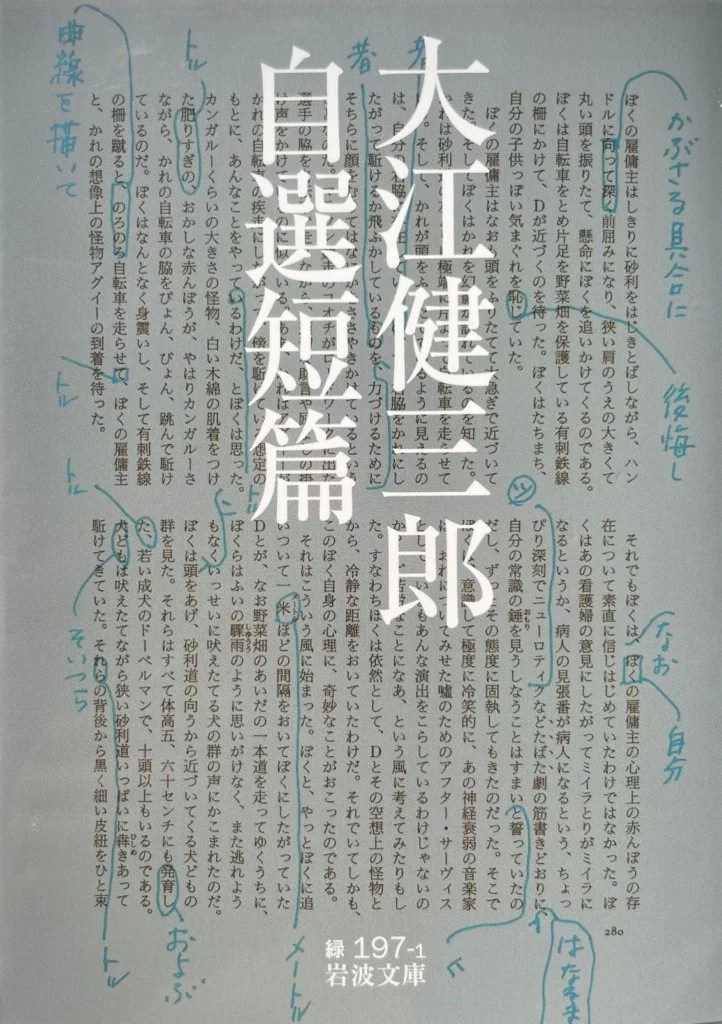 大江健三郎
自選短篇
ぼくの雇傭主はしきりに砂利をはじきとばしながら、ハン
ドルに向って深く前屈みになり、狭い肩のうえの大きくて
丸い頭を振りたて、懸命にぼくを追いかけてくるのである。
ぼくは自転車をとめ片足を野菜畑を保護している有刺鉄線
の柵にかけて、Dが近づくのを待った。ぼくはたちまち、
自分の子供っぽい気まぐれを恥じていた。
ぼくの雇傭主はなお 頭をふりたてて 急ぎで近づいて
きた。そしてぼくはかれを幻 が訪れているのを知った。
かれは砂利 極端に 自転車を走らせて
そして、かれが頭をふ ように見えるの
は、自分 右脇 右脇をかれにし
たがって駈けるか飛ぶかしているものを、力づけるために
そちらに顔を ささやきかけているという
選手の脇を 助言や
け声をかけて のに似ている。
かれの自転車の疾走にし 傍を駈けて 想定の
もとに、あんなことをやっているわけだ、とぼくは思った。
カンガルーくらいの大きさの怪物、白い木綿の肌着をつけ
た肥りすぎの、おかしな赤んぼうが、やはりカンガルーさ
ながら、かれの自転車の脇をぴょん、ぴょん、跳んで駈け
ているのだ。ぼくはなんとなく身震いし、そして有刺鉄線
の柵を蹴ると、のろのろ自転車を走らせて、ぼくの雇傭主
と、かれの想像上の怪物アグイーの到着を待った。
それでもぼくは、ぼくの雇傭主の心理上の赤んぼうの存
在について素直に信じはじめていたわけではなかった。ぼ
くはあの看護婦の意見にしたがってミイラとりがミイラに
なるというか、病人の見張番が病人になるという、ちょっ
ぴり深刻でニューロティクなどたばた劇の筋書きどおりに、
自分の常識の錘を見うしなうことはすまいと誓っていたの
だし、ずっとその態度に固執してもきたのだった。そこで
ぼくは、意識して極度に冷笑的に、あの神経衰弱の音楽家
は、おれについてみせた嘘のためのアフター・サーヴィス
として、いまもあんな演出をこらしているわけじゃないの
か、 ことになあ、という風に考えてみたりもし
た。すなわちぼくは依然として、Dとその空想上の怪物と
から、冷静な距離をおいていたわけだ。それでいてしかも、
このぼく自身の心理に、奇妙なことがおこったのである。
それはこういう風に始まった。ぼくと、やっとぼくに追
いついて一米ほどの間隔をおいてぼくにしたがっていた
Dとが、なお野菜畑のあいだの一本道を走ってゆくうちに、
ぼくらはふいの驟雨のように思いがけなく、また逃れよう
もなくいっせいに吠えたてる犬の群の声にかこまれたのだ。
ぼくは頭をあげ、砂利道の向うから近づいてくる犬どもの
群を見た。それらはすべて体高五、六十センチにも発育し
た、若い成犬のドーベルマンで、十頭以上もいるのである。
犬どもは吠えたてながら狭い砂利道いっぱいに犇きあって
駈けてきていた。それらの背後から黒く細い皮紐をひと束
おもり
しゅうう
ひしめ
280
かぶさる具合に
後悔し
なお
自分
者
者
トル
曲線を描いて
トル
トル
トル
そいつら
およぶ
トル
メートル
緑 197-1
岩波文庫